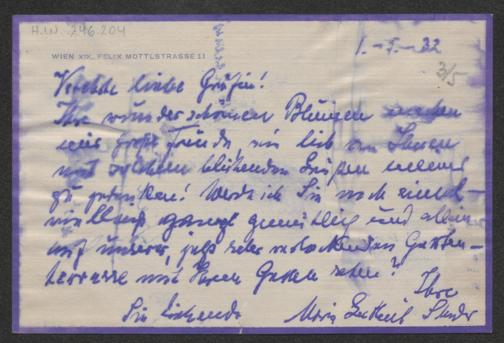 H.I.N. 246.204
WIEN XIX., FELIX MOTTLSTRASSE 11
1.-5.-32
3/5
Verehrte liebe Gräfin!
Ihre wunderschönen Blumen machen
mir große Freude, wie lieb von Ihnen
mit solchem blühenden
zu gedenken! Werde ich Sie noch einmal
ganz gemütlich und allein
auf unserer, jetzt sehr verlockenden Garten-
terrasse mit Ihrem Gatten sehen?
Ihre
Sie liebende Maria